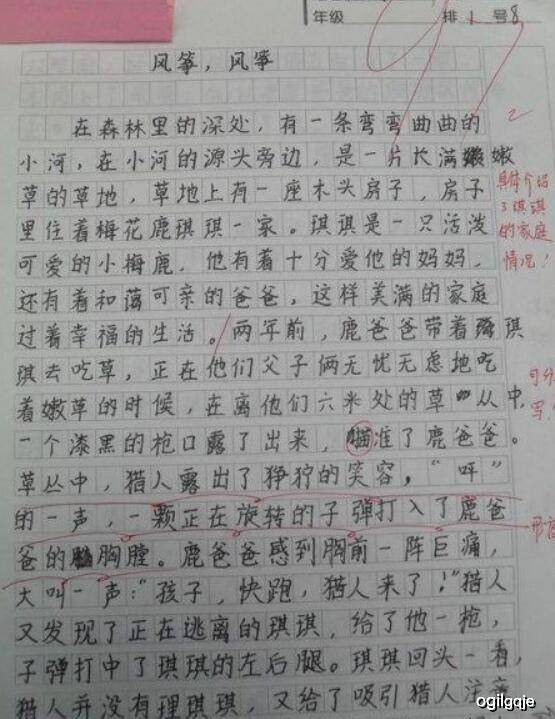 年级 排 1 号 8
风筝，风筝
在森林里的深处，有一条弯弯曲曲的
小河，在小河的源头旁边，是一片长满嫩
草的草地，草地上有一座木头房子，房子
里住着梅花鹿琪琪一家。琪琪是一只活泼
可爱的小梅鹿，他有着十分爱他的妈妈，
还有着和蔼可亲的爸爸，这样美满的家庭
过着幸福的生活。两年前，鹿爸爸带着琪
琪去吃草，正在他们父子俩无忧无虑地吃
着嫩草的时候，在离他们六米处的草从中，
一个漆黑的枪口露了出来，瞄准了鹿爸爸。
草丛中，猎人露出了狰狞的笑容，“呯”
的一声，一颗正在旋转的子弹打入了鹿爸
爸的胸膛。鹿爸爸感到胸前一阵巨痛，
大叫一声：“孩子，快跑，猎人来了！”猎人
又发现了正在逃离的琪琪，给了他一枪，
子弹打中了琪琪的左后腿。琪琪回头一看，
猎人并没有理琪琪，又给了吸引猎人注意
具体介绍
了琪琪
的家庭
情况！
ogilgqje